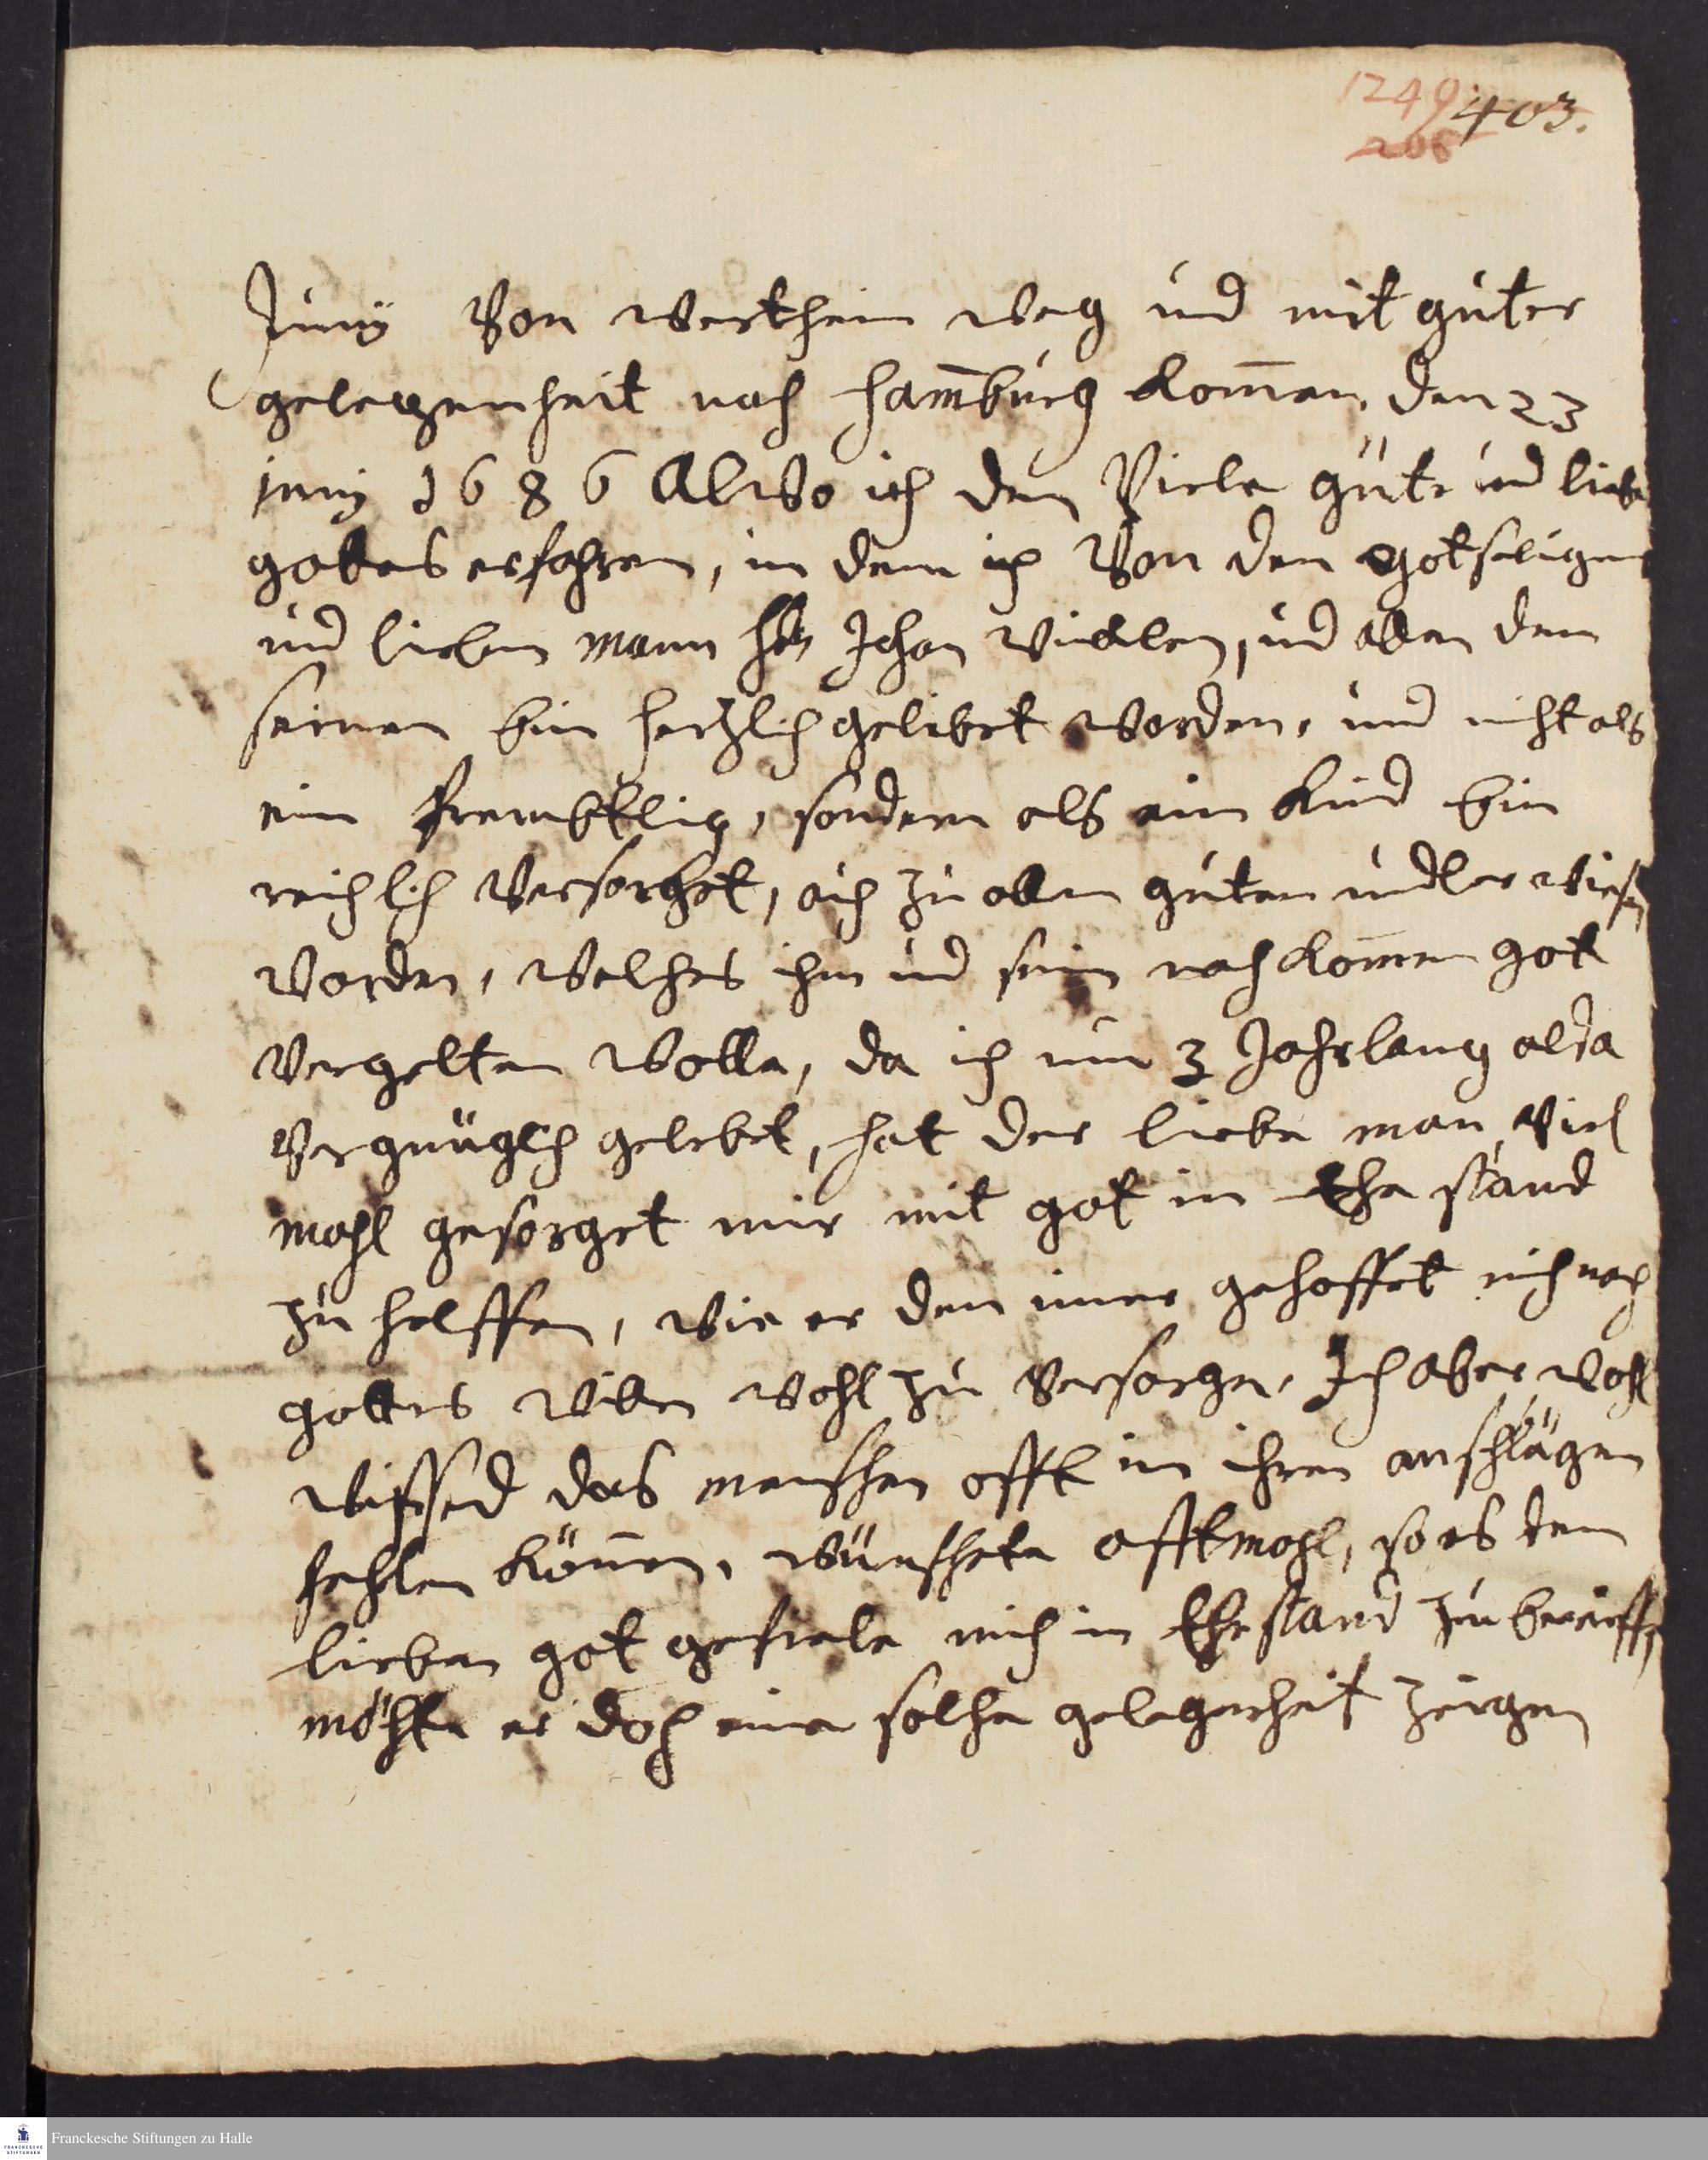 1249
403.
206
Junij Von wertheim weg und mit guter
gelegenheit nach Ham̅burg kom̅en. den 23
junij 1686 Alwo ich den Viele güte und liebe
gottes erfahren, in dem ich Von den gotseligen
und lieben mann Johan und allen den
seinen bin hertzlich gelibet worden, und nicht als
ein frembtlig, sondern als ein Kind bin
reichlich Versorget, auch zu allen guten
worden, welches ihm und sein nachkom̅en got
Vergelten wolle, da ich nun 3 Jahrlang alda
Vergnüglich gelebet, hat der liebe man Viel
mahl gesorget mir mit got in Ehe stand
zu helffen, wie er den im̅er gehoffet mich nach
gottes willen wohl zu Versorgen, Ich aber wohl
wissend das menschen offt in ihren anschlägen
fehlen kön̅en, wünschete offtmahl, so es dem
lieben got gefiele mich in Ehestand zu beruffen
möchte er doch eine solche gelegenheit zeigen
Franckesche Stiftungen zu Halle
FRANCKESCHE STIFTUNGEN